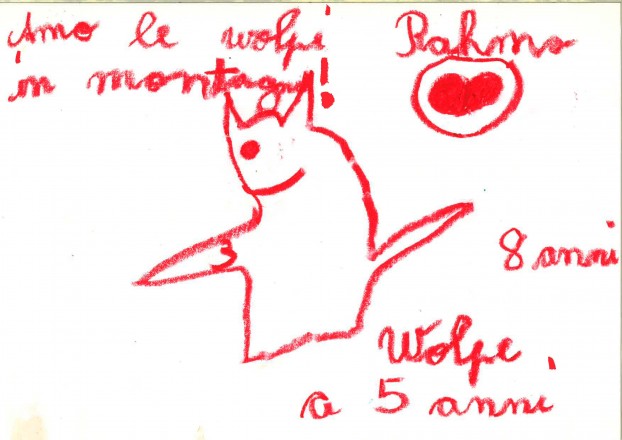 Amo le wolpi
in montagna!
Rahma
8 anni
Wolpe
a 5 anni